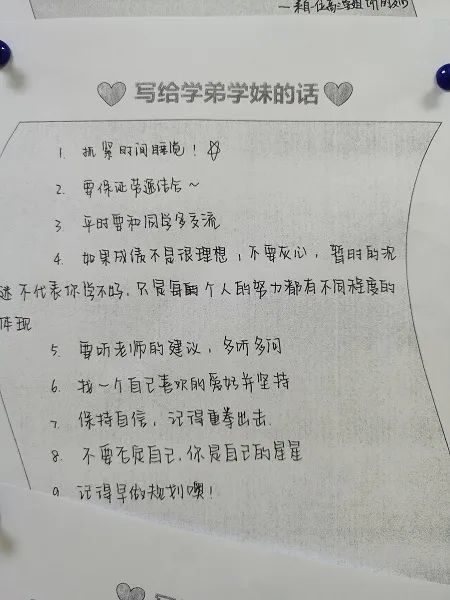 写给学弟学妹的话
1. 抓紧时间睡觉！
2. 要保证劳逸结合～
3. 平时要和同学多交流
4. 如果成绩不是很理想，不要灰心，暂时的沉
迷不代表你学不好，只是每个人的努力都有不同程度的
体现
5. 要听老师的建议，多听多问
6. 找一个自己喜欢的爱好并坚持
7. 保持自信，记得重拳出击
8. 不要否定自己，你是自己的星星
9. 记得早做规划噢！